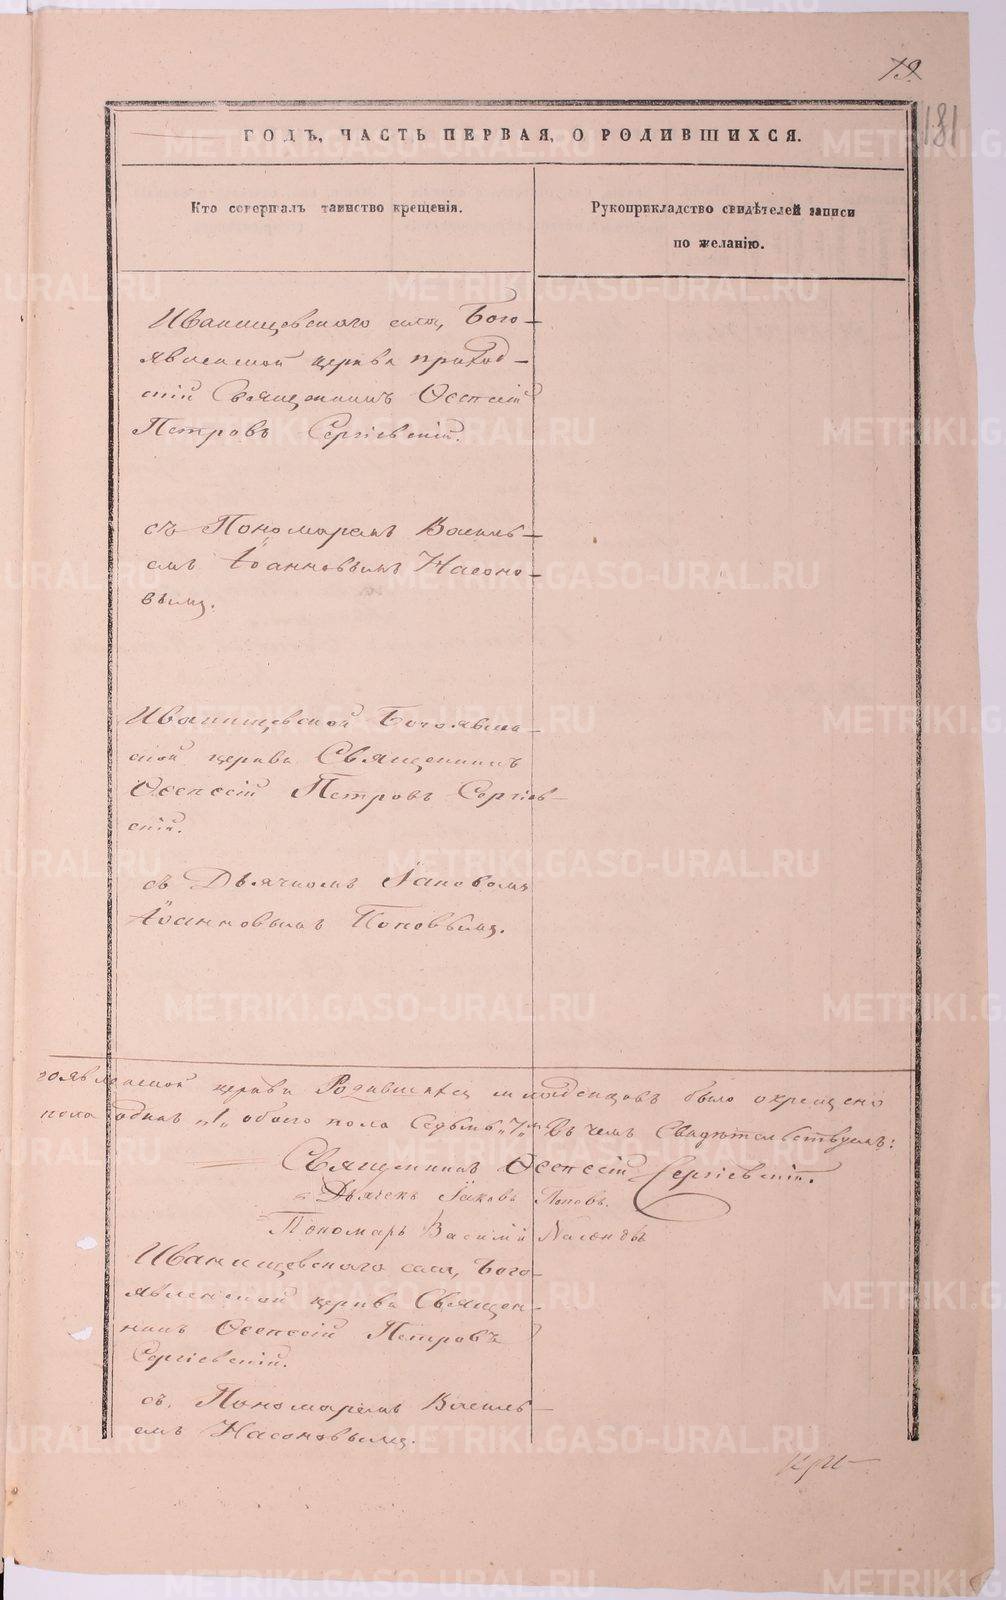 79.
181
ГОДЪ, ЧАСТЬ ПЕРВАЯ, О РОДИВШИХСЯ.
Кто совершалъ таинство крещенія.
Рукоприкладство свидѣтелей записи
по желанію.
Иванищевскаго села, Бого-
явленской церкви приход-
скій Священникъ Ѳеопсій
Петровъ Сергіевскій.
съ Пономаремъ Василь-
емъ Іоанновымъ Насоно-
вымъ.
Иванищевской Богоявлен-
ской церкви Священникъ
Петровъ Сергіев-
скій.
съ Дьячкомъ Іаковомъ
Іоанновымъ Поповымъ.
гоявленской церкви Родившихся младенцовъ было окрещено
пола одинъ „1„ обоего пола Седьмь „7„ Въ чемъ Свидѣтельствуемъ:
Священникъ Сергіевскій.
Дьячекъ Іаковъ Поповъ.
Пономарь Василій Насоновъ
Иванищевскаго села, Бого-
явленской церкви Священ-
никъ Петровъ
Сергіевскій.
съ Пономаремъ Василь-
емъ Насоновымъ.
METRIKI.GASO-URAL.RU